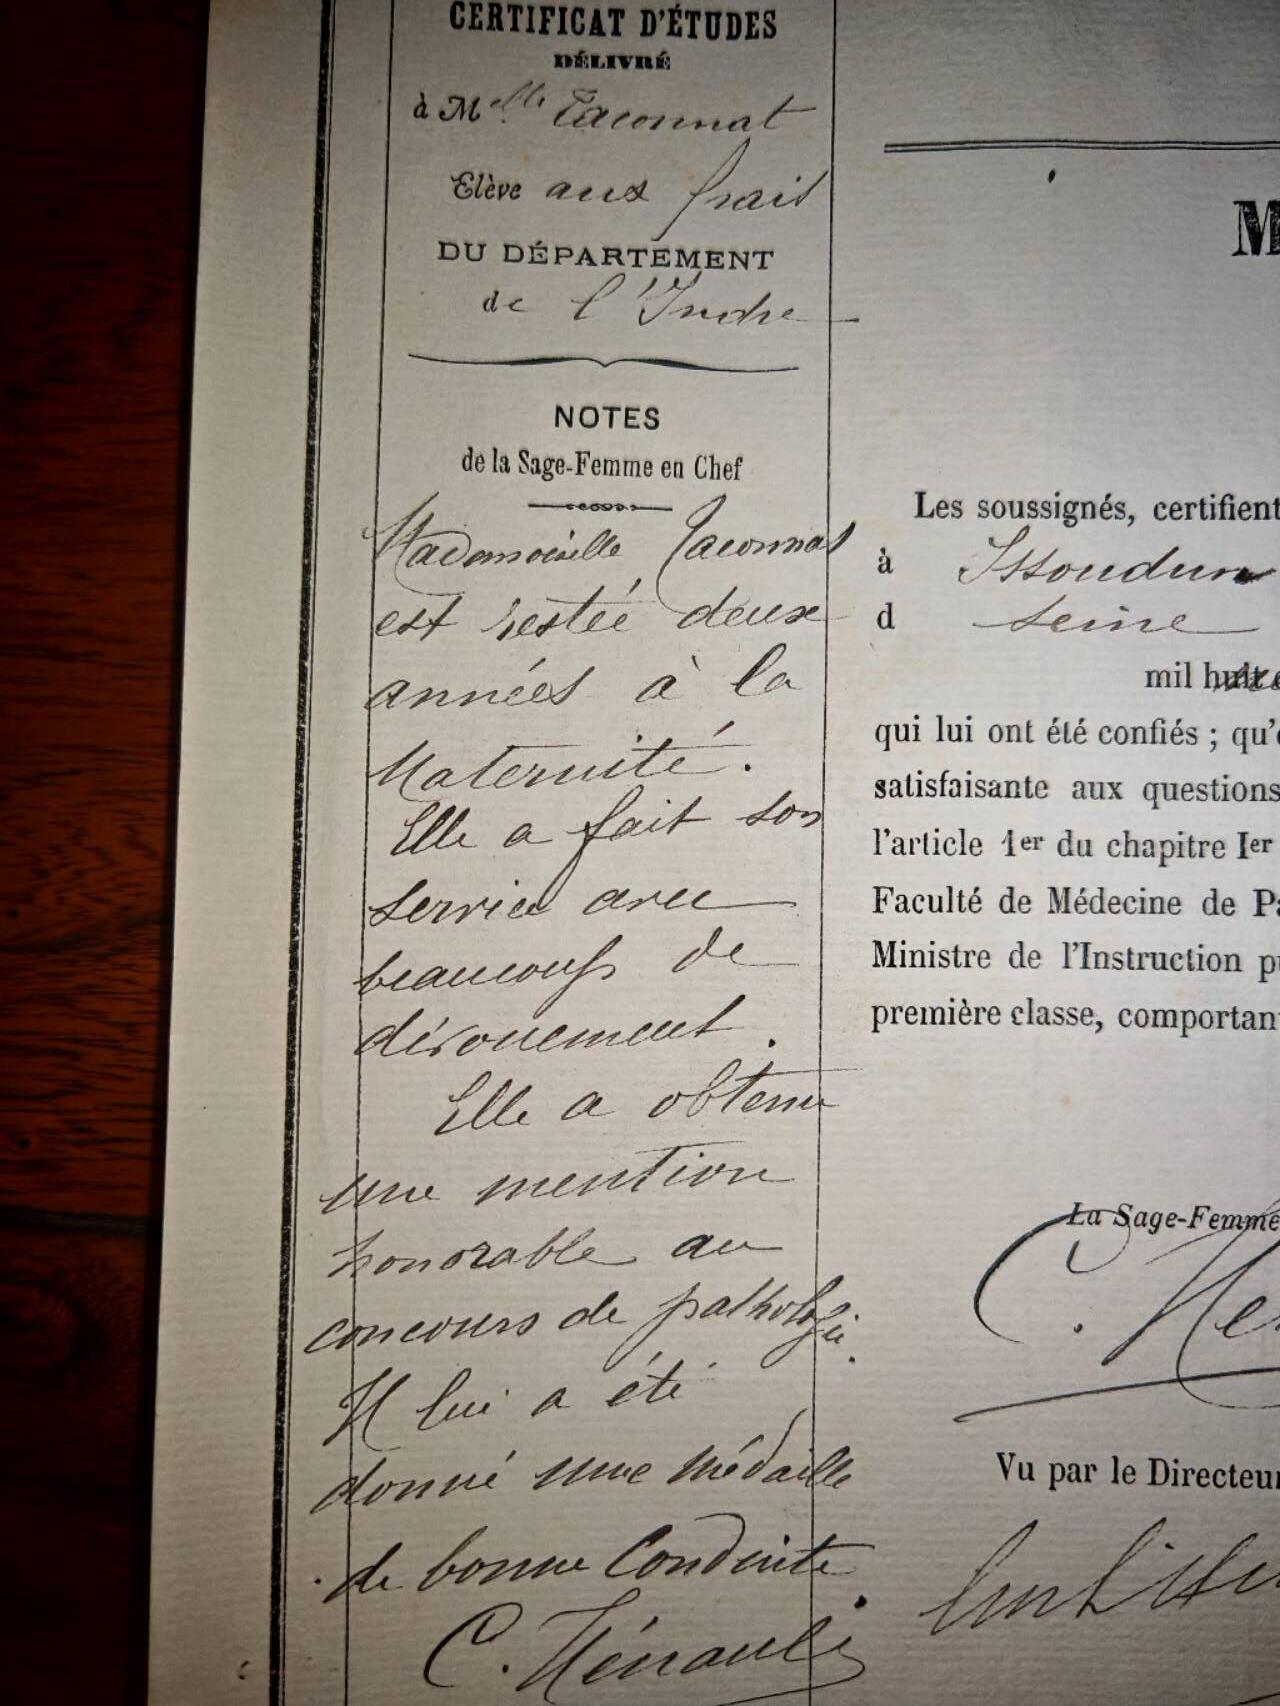 CERTIFICAT D'ÉTUDES
DÉLIVRÉ
à Melle Taconnat
Elève aux frais
DU DÉPARTEMENT
de l'Indre
NOTES
de la Sage-Femme en Chef
Mademoiselle Taconnat
est restée deux
années à la
Maternité.
Elle a fait son
service avec
beaucoup de
dévouement.
Elle a obtenu
une mention
honorable au
concours de pathologie.
Il lui a été
donné une médaille
de bonne Conduite.
C. Hénault
M
Les soussignés, certifient
à Issoudun
d Seine
mil
qui lui ont été confiés ; qu'
satisfaisante aux questions
l'article 1er du chapitre Ier
Faculté de Médecine de Pa
Ministre de l'Instruction pu
première classe, comportan
La Sage-Femme
C. He
Vu par le Directeur